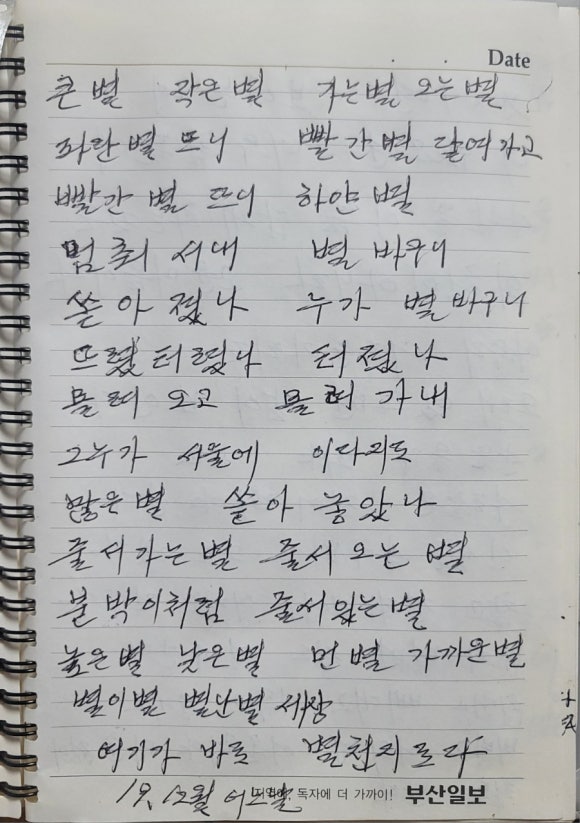 Date
큰 별 작은 별 가는별 오는 별
파란 별 뜨니 빨간 별 달여가고
빨간 별 뜨니 하얀 별
멈춰 서내 별 바구니
쏟아 졌나 누가 별바구니
뜨렸 터렸나 터졌나
몰려 오고 몰려 가내
그누가 서울에 이다지도
많은 별 쏟아 놓았나
줄서가는 별 줄서 오는 별
붙박이처럼 줄서있는 별
높은 별 낮은 별 먼 별 가까운 별
별이별 별난별 세상
여기가 바로 별천지로다
19. 12월 어느날 독자에 더 가까이! 부산일보